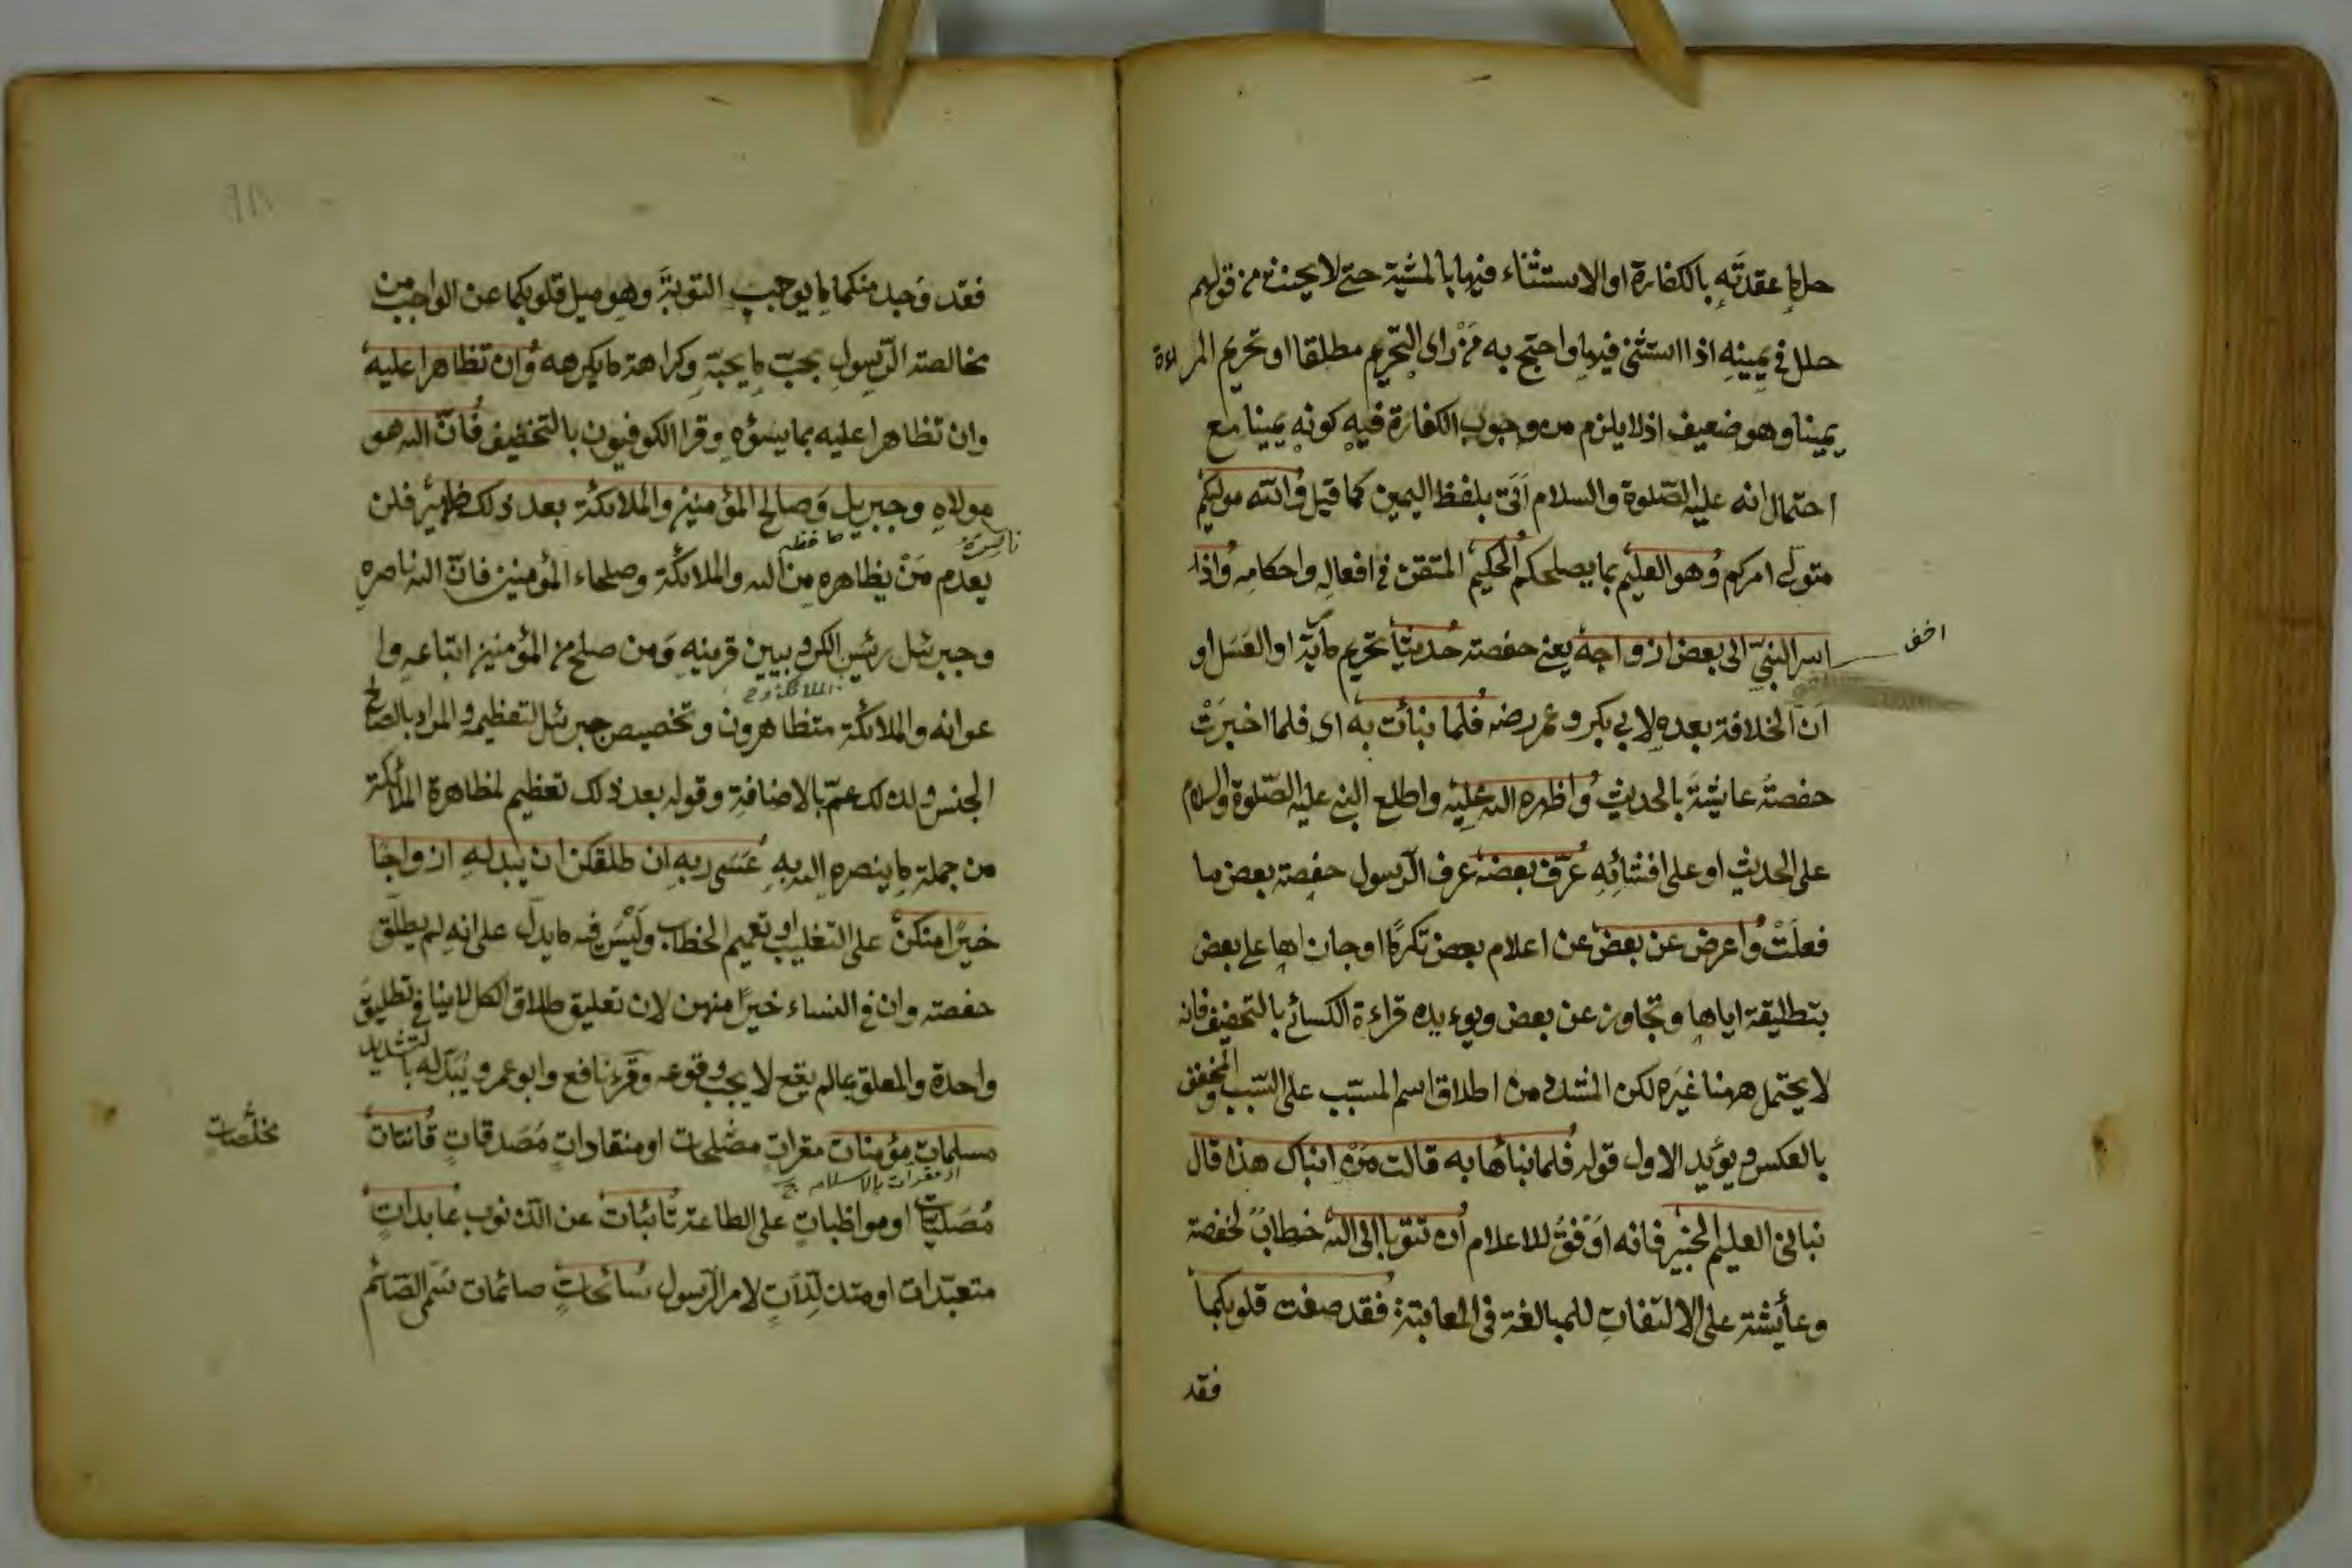 حل ما عقدته بالكفارة او الاستثناء فيها بالمشية حتى لا يحنث من قولهم
حلل في يمينه اذا استثنى فيها واحتج به من راى التحريم مطلقا او تحريم المراءة
يمينا وهو ضعيف اذ لا يلزم من وجوب الكفارة فيه كونه يمينا مع
احتمال انه عليه الصلوة والسلام اتى بلفظ اليمين كما قيل والله موليكم
متولى امركم وهو العليم بما يصلحكم الحكيم المتقن في افعاله واحكامه واذ
اسر النبي الى بعض ازواجه يعنى حفصة حديثا تحريم مارية او العسل او
اخفى
ان الخلافة بعده لابي بكر وعمر رضه فلما نبأت به اى فلما اخبرت
حفصة عايشة بالحديث واظهره الله عليه واطلع النبي عليه الصلوة والسلام
على الحديث او على افشائه عرف بعضه عرف الرسول حفصة بعض ما
فعلت واعرض عن بعض عن اعلام بعض تكرما او جازاها على بعض
بتطليقة اياها وتجاوز عن بعض ويوءيده قراءة الكسائى بالتخفيف فانه
لا يحتمل ههنا غيره لكن المشدد من اطلاق اسم المسبب على السبب والمخفف
بالعكس ويؤيد الاول قوله فلما نبأها به قالت من انبأك هذا قال
نباني العليم الخبير فانه اوفق للاعلام ان تتوبا الى الله خطاب لحفصة
وعأيشة على الالتفات للمبالغة في المعاتبة فقد صغت قلوبكما
فقد
فقد وجد منكما ما يوجب التوبة وهو ميل قلوبكما عن الواجب من
مخالصة الرسول بحب ما يحبه وكراهة ما يكرهه وان تظاهرا عليه
وان تظاهرا عليه بما يسؤه وقرا الكوفيون بالتخفيف فان الله هو
مولاه وجبريل وصالح المؤمنين والملائكة بعد ذلك ظهير فلن
ناصره
يعدم من يظاهره من الله والملائكة وصلحاء المؤمنين فان الله ناصره
وجبرئل رئيس الكروبيين قرينه ومن صلح من المؤمنين اتباعه وا
عوانه والملائكة متظاهرون وتخصيص جبرئل لتعظيمه والمراد بالصالح
الجنس ولذلك عم بالاضافة وقوله بعد ذلك تعظيم لمظاهرة الملائكة
من جملة ما ينصره الله به عسى ربه ان طلقكن ان يبدله ازواجا
خيرا منكن على التغليب او تعميم الخطاب وليس فيه ما يدل على انه لم يطلق
حفصة وان في النساء خيرا منهن لان تعليق طلاق الكل لا ينافى تطليق
واحدة والمعلق بما لم يقع لا يجب وقوعه وقرء نافع وابو عمرو يبدله بالتشديد
مسلمات مؤمنات مقرات مخلصات او منقادات مصدقات قانتات
مخلصات
او مقرات بالاسلام
مصليات او مواظبات على الطاعة تائبات عن الذنوب عابدات
متعبدات او متذللات لامر الرسول سائحات صائمات سمى الصائم